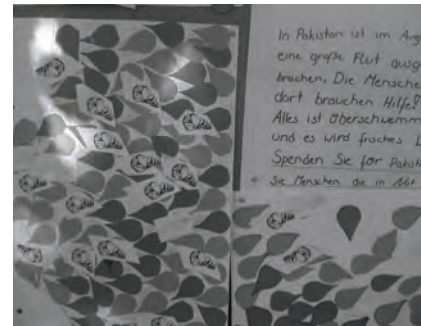 In Pakistan ist im Aug
eine große Flut ausge
brochen. Die Mensche
dort brauchen Hilfe!
Alles ist überschwemm
und es wird frisches
Spenden Sie für Pakist
Sie Menschen die in Not